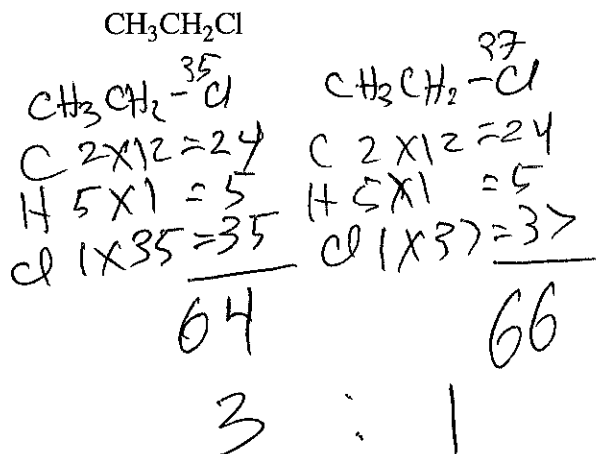 CH₃CH₂Cl
CH₃CH₂-³⁵Cl
C 2×12=24
H 5×1=5
Cl 1×35=35
64
CH₃CH₂-³⁷Cl
C 2×12=24
H 5×1=5
Cl 1×37=37
66
3 : 1